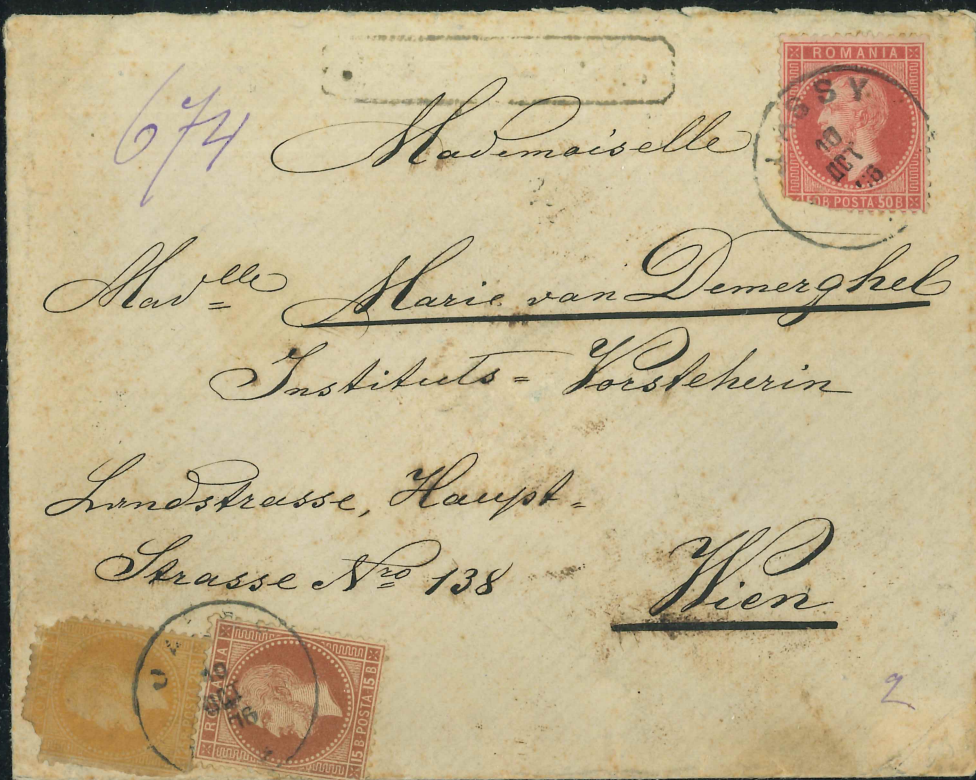 ROMANIA
50 B POSTA 50 B
JASSY
10
OCT
674
Mademoiselle
Madlle Marie van Demerghel
Instituts= Vorsteherin
Landstrasse, Haupt=
Strasse Nro 138
Wien
15 B POSTA 15 B
2